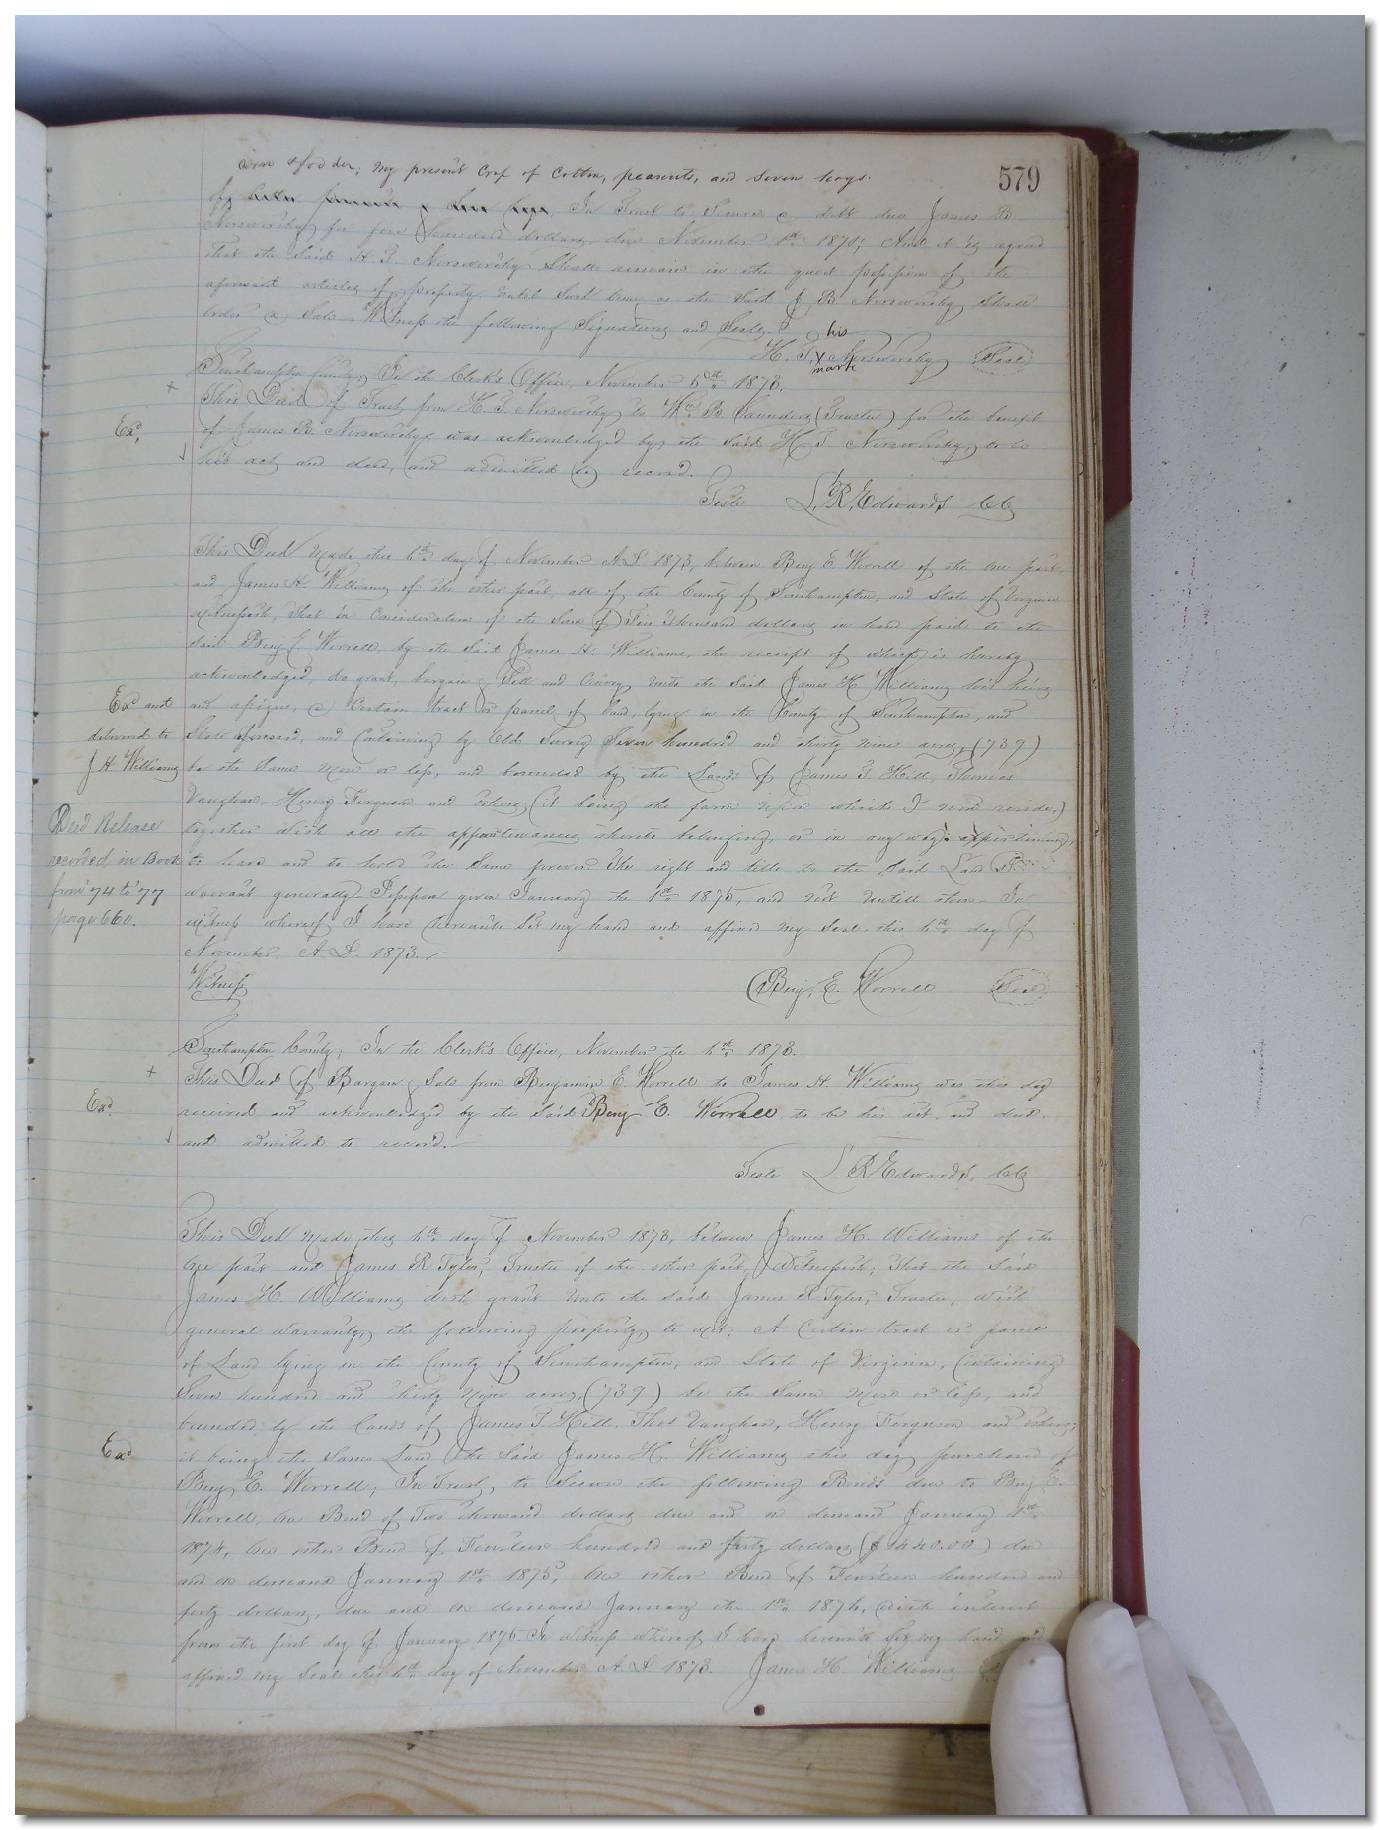 579
corn & fodder, my present Crop of Cotton, peanuts, and seven hogs.
In Trust to Secure a debt due James B.
Norsworthy for five hundred dollars due November 1st 1874; And it is agreed
that the said H. T. Norsworthy Shall remain in the quiet possession of the
aforesaid articles of property until such time as the said J. B. Norsworthy Shall
order a Sale. Witness the following Signatures and Seals.
his
H. T. X Norsworthy Seal
mark
Southampton County, In the Clerk's Office, November 5th 1873.
This Deed of Trust from H. T. Norsworthy to Wm. B. Saunders (Trustee) for the benefit
Exd,
of James B. Norsworthy, was acknowledged by the said H T. Norsworthy, to be
his act and deed, and admitted to record.
Teste L. R. Edwards CC
This Deed made this day of November A.D. 1873, between Benj E. Worrell of the one part
and James H. Williams of the other part, all of the County of Southampton, and State of Virginia
Witnesseth, That in Consideration of the Sum of Five Thousand dollars in hand paid to the
said Benj E Worrell, by the Said James H. Williams, the receipt of which is hereby
acknowledged, do grant, bargain & Sell and Convey unto the said James H Williams his heirs
Exd and
delivered to
J H Williams
and assigns, a Certain tract or parcel of Land, lying in the County of Southampton, and
State aforesaid, and Containing by Old Survey Seven hundred and thirty nine acres, (739)
be the Same more or less, and bounded by the Lands of James T. Hill, Thomas
Vaughan, Henry Ferguson and others, (it being the farm upon which I now reside,)
Deed Release
recorded in Book
from '74 to '77
page 660.
together with all the appurtenances thereto belonging, or in any wayes appertaining,
to have and to hold the Same forever. The right and title to the Said Land
warrant generally. Possession given January the 1st 1875, and not untill then. In
witness whereof I have hereunto Set my hand and affixed my Seal this day of
November, A. D. 1873.
Witness
Benj. E. Worrell Seal
Southampton County, In the Clerk's Office, November the 1873.
This Deed of Bargain & Sale from Benjamin E Worrell to James H. Williams was this day
Exd
received and acknowledged by the Said Benj E. Worrell to be his act and deed
and admitted to record.
Teste L R Edwards, CC
This Deed made this day of November 1873, between James H. Williams of the
one part and James R Tyler, Trustee of the other part, Witnesseth; That the Said
James H. Williams doth grant unto the said James R Tyler, Trustee, with
general warranty, the following property, to wit: A Certain tract or parcel
of Land lying in the County of Southampton, and State of Virginia, Containing
Seven hundred and thirty Nine acres, (739) be the Same more or less, and
bounded by the Lands of James T. Hill, Thos Vaughan, Henry Ferguson and others,
Exd
it being the Same Land the Said James H. Williams this day purchased of
Benj E. Worrell, In Trust, to Secure the following Bonds due to Benj E.
Worrell, One Bond of Two thousand dollars due and on demand January 1st
1874, One other Bond of Fourteen hundred and forty dollars ($1440.00) due
and on demand January 1st 1875, One other Bond of Fourteen hundred and
forty dollars, due and on demand January the 1st 1876, with interest
from the first day of January 1875. In witness whereof I have hereunto Set my hand and
affixed my Seal this day of November A D 1873. James H. Williams